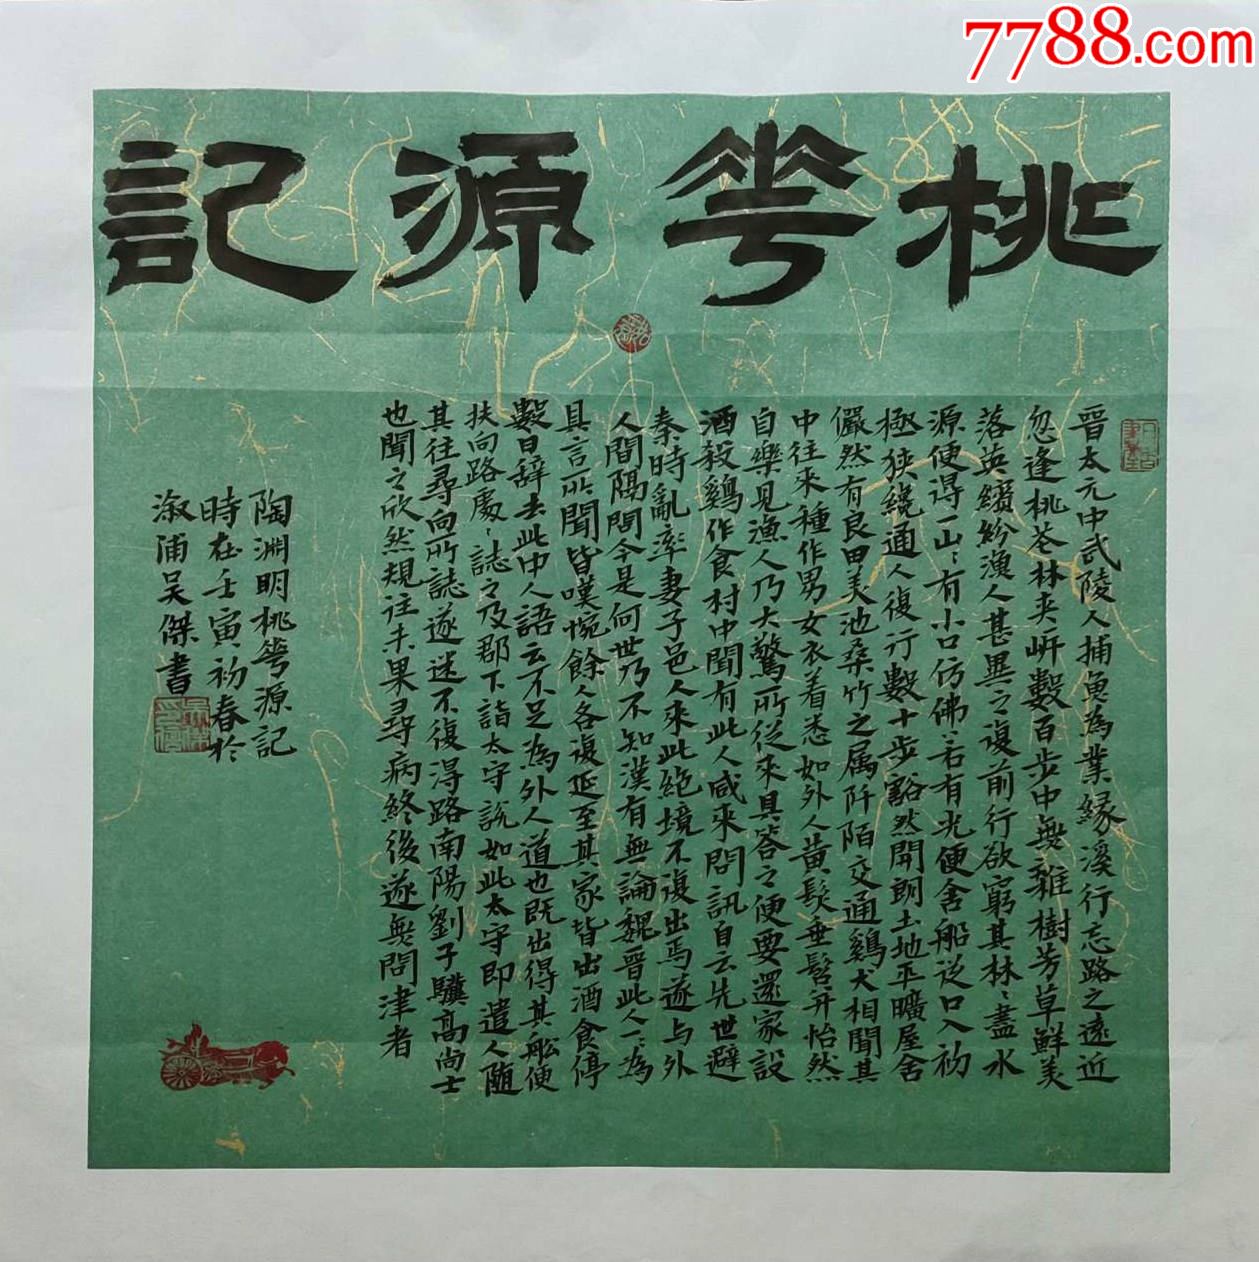 7788.com
桃芲源記
晉太元中武陵人捕魚為業緣溪行忘路之遠近
忽逢桃芲林夹岍數百步中無雜樹芳草鮮美
落英繽紛漁人甚異之復前行欲窮其林〻盡水
源便得一山〻有小口仿佛〻若有光便舍船從口入初
極狹纔通人復行數十步豁然開朗土地平曠屋舍
儼然有良田美池桑竹之属阡陌交通鷄犬相聞其
中往來種作男女衣着悉如外人黃髮垂髫并怡然
自樂見漁人乃大驚所從來具答之便要還家設
酒殺鷄作食村中聞有此人咸來問訊自云先世避
秦時亂率妻子邑人來此絶境不復出焉遂与外
人間隔問今是何世乃不知漢有無論魏晉此人一〻為
具言所聞皆嘆惋餘人各復延至其家皆出酒食停
數日辞去此中人語云不足為外人道也既出得其船便
扶向路處〻誌之及郡下詣太守說如此太守即遣人随
其往尋向所誌遂迷不復得路南陽劉子驥高尚士
也聞之欣然規往未果尋病終後遂無問津者
陶淵明桃芲源記
時在壬寅初春於
溆浦吴傑書